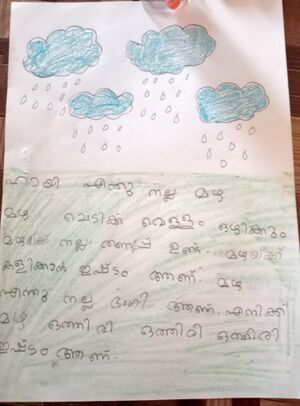 ഹായി എന്തു നല്ല മഴ
മഴ ചെടിക്ക് വെള്ളം ഒഴിക്കും
മഴയ്ക്ക് നല്ല തണുപ്പ് ഉണ്ട്. മഴയ്ക്ക്
കളിക്കാൻ ഇഷ്ടം ആണ്. മഴ
എന്തു നല്ല ഭംഗി ആണ്. എനിക്ക്
മഴ ഒത്തിരി ഒത്തിരി ഒത്തിരി
ഇഷ്ടം ആണ്.